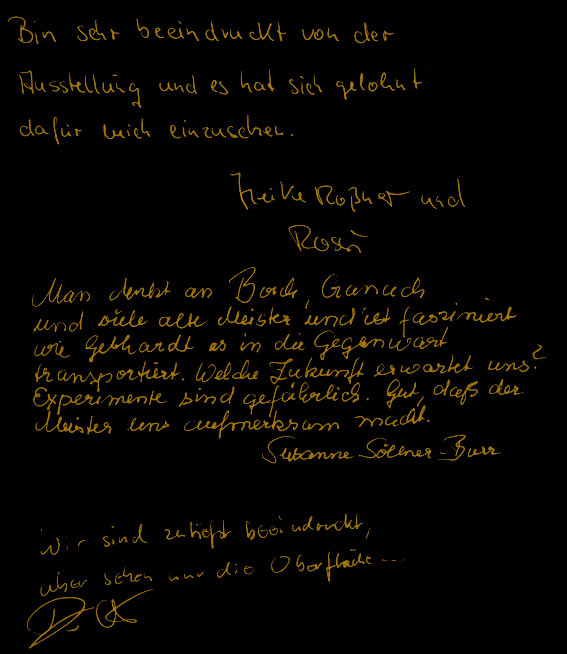 Bin sehr beeindruckt von der
Ausstellung und es hat sich gelohnt
dafür mich einzusehen.
Heike Roßner und
Man denkt an Bosch, Cranach
und viele alte Meister und ist fasziniert
wie Gebhardt es in die Gegenwart
transportiert. Welche Zukunft erwartet uns?
Experimente sind gefährlich. Gut, daß der
Meister uns aufmerksam macht.
Susanne
Wir sind zutiefst beeindruckt,
aber sehen nur die Oberfläche...